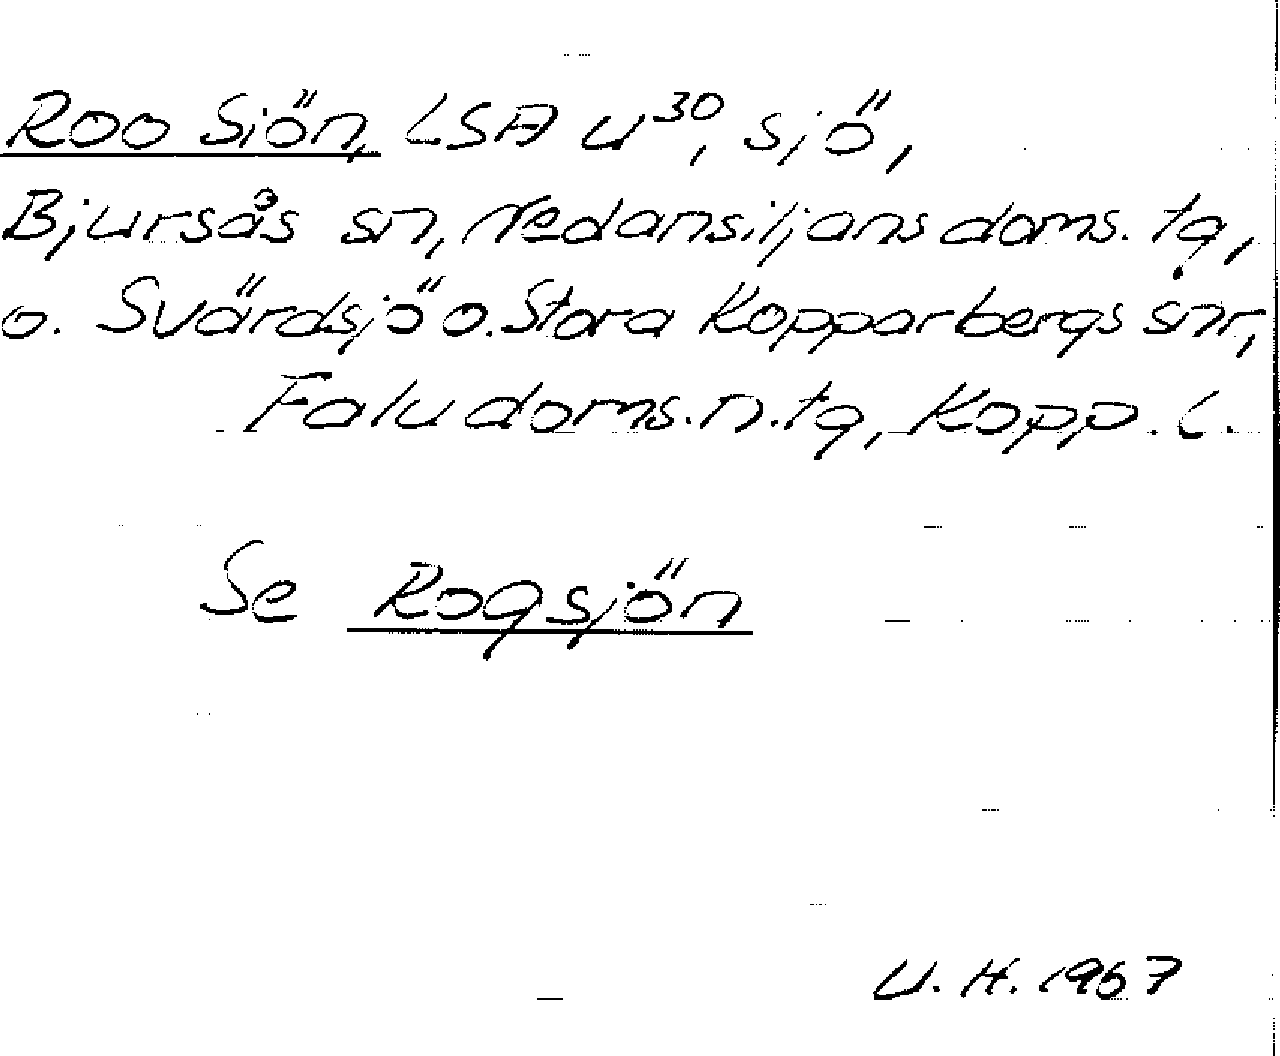 Roo Siön, LSA U³⁰, sjö,
Bjursås sn, Nedansiljans doms. tg,
o. Svärdsjö o. Stora Kopparbergs snr,
Falu doms.n.tg, Kopp. l.
Se Rogsjön
U.H. 1967